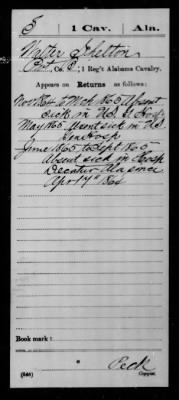 S | 1 Cav. | Ala.
Walter Shelton
Pvt., Co. D, 1 Reg't Alabama Cavalry.
Appears on Returns as follows:
Nov 1864 to Mch 1865 Absent
sick in U.S. G. Hosp.
May 1865 Absent sick in U.S.
Gen Hosp
June 1865 to Sept 1865
Absent sick in Hosp
Decatur Ala since
Apr 17" 1864
Book mark:
Peck
(546) Copyist.